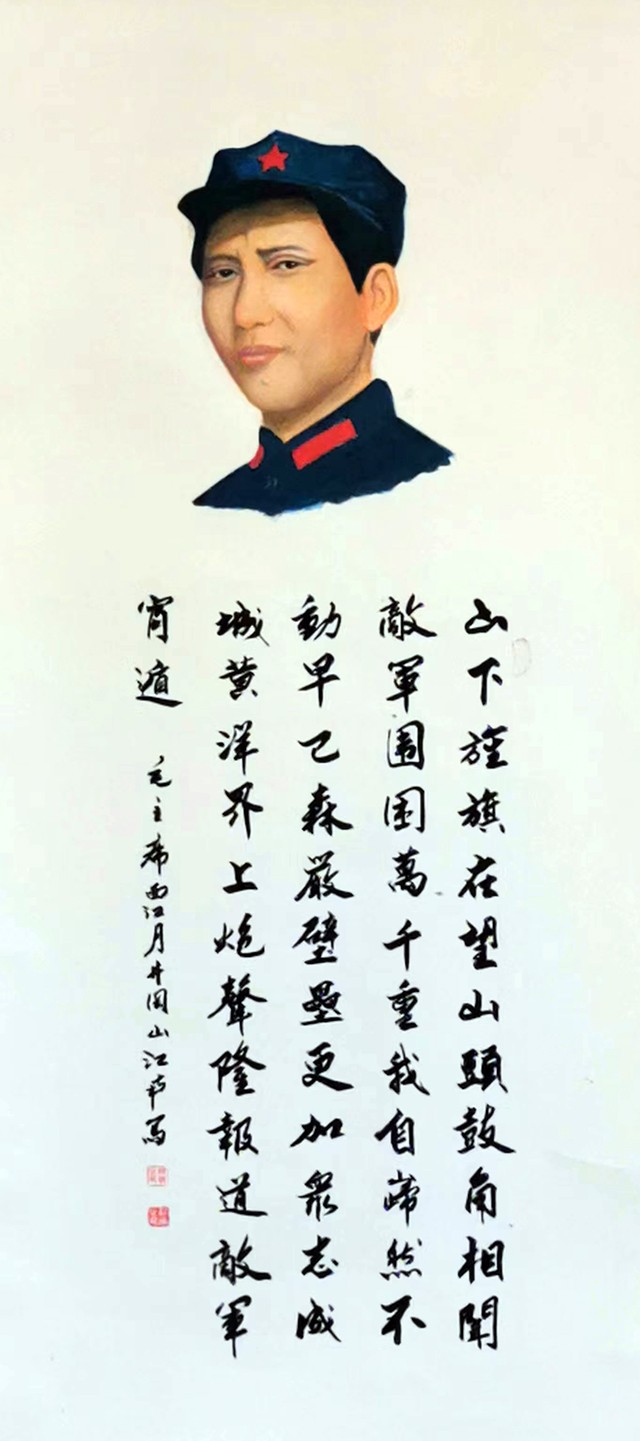 山下旌旗在望山頭鼓角相聞
敵軍圍困萬千重我自巋然不
動早已森嚴壁壘更加衆志成
城黄洋界上炮聲隆報道敵軍
宵遁
毛主席西江月井岡山